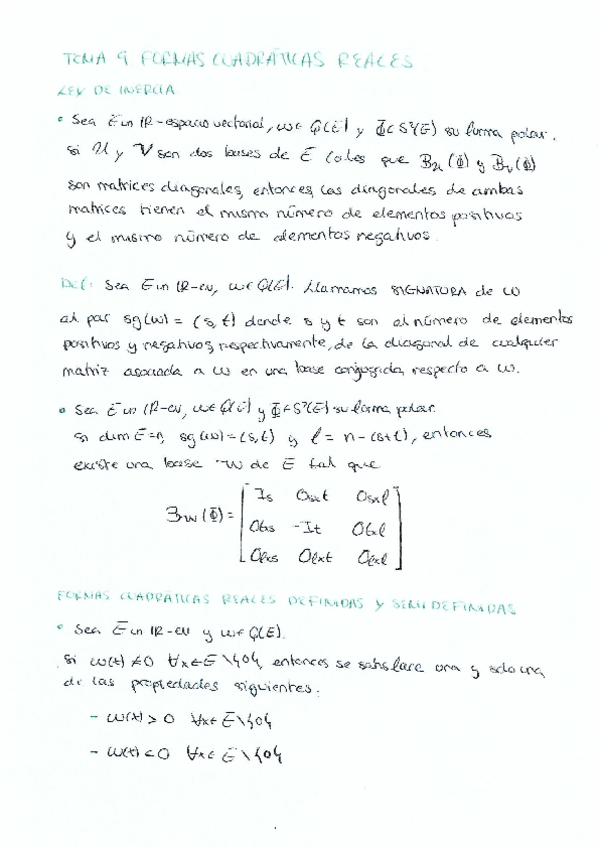 TEMA 9 FORMAS CUADRÁTICAS REALES
LEY DE INERCIA
• Sea E un IR-espacio vectorial, ω∈ Q(E) y Φ∈S²(E) su forma polar.
si U y V son dos bases de E tales que B_U (Φ) y B_V (Φ)
son matrices diagonales, entonces, las diagonales de ambas
matrices tienen el mismo número de elementos positivos
y el mismo número de elementos negativos.
DEF: Sea E un IR-ev, ω∈Q(E). Llamamos SIGNATURA de ω
al par sg(ω) = (s,t) donde s y t son el número de elementos
positivos y negativos, respectivamente, de la diagonal de cualquier
matriz asociada a ω en una base conjugada respecto a ω.
• Sea E un IR-ev, ω∈Q(E) y Φ∈S²(E) su forma polar.
si dim E=n, sg(ω)=(s,t) y l = n-(s+t), entonces
existe una base W de E tal que
B_W (Φ) = [ Is Osxt Osxl
Otxs -It Otxl
Olxs Olxt Olxl ]
FORMAS CUADRÁTICAS REALES DEFINIDAS Y SEMIDEFINIDAS
• Sea E un IR-ev y ω∈Q(E).
si ω(x) ≠0 ∀x∈E\{0}, entonces se satisface una y solo una
de las propiedades siguientes:
- ω(x) > 0 ∀x∈ E\{0}
- ω(x) < 0 ∀x∈ E\{0}